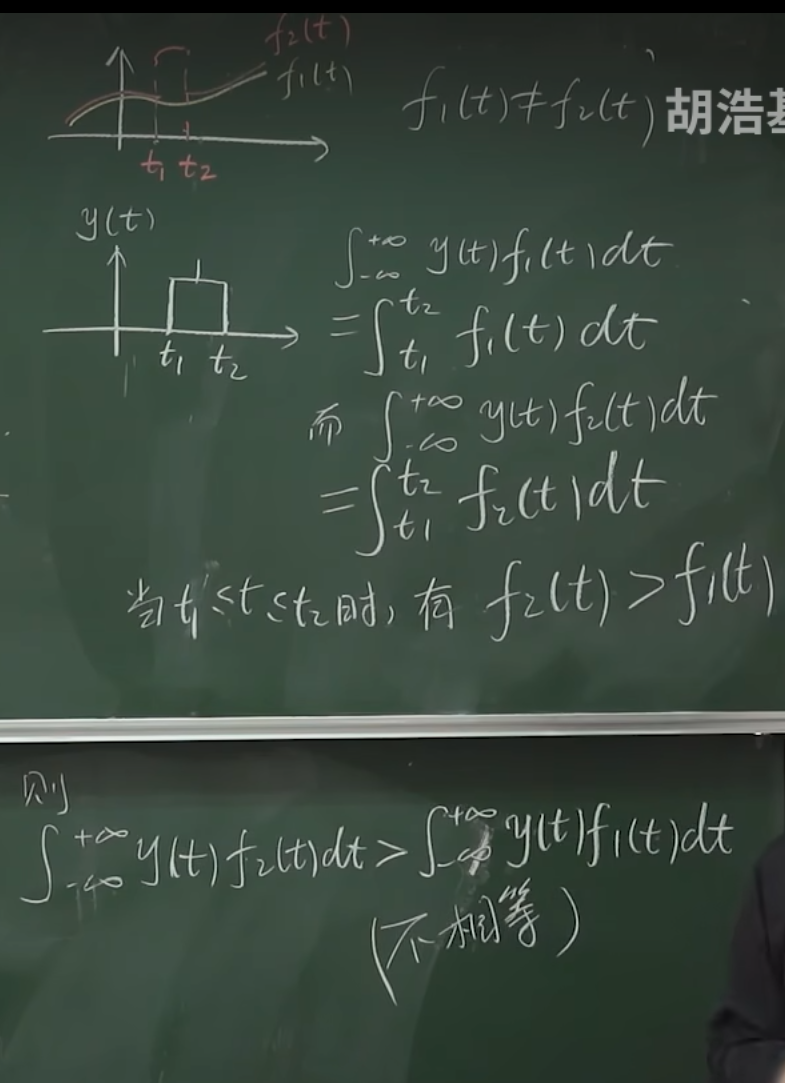 f₂(t)
f₁(t)
t₁ t₂
f₁(t)≠f₂(t)
胡浩基
y(t)
1
t₁ t₂
∫₋∞⁺∞ y(t)f₁(t)dt
=∫ₜ₁ᵗ² f₁(t)dt
而 ∫₋∞⁺∞ y(t)f₂(t)dt
=∫ₜ₁ᵗ² f₂(t)dt
当t₁≤t≤t₂时,有 f₂(t)>f₁(t)
则
∫₋∞⁺∞ y(t)f₂(t)dt>∫₋∞⁺∞ y(t)f₁(t)dt
(不相等)